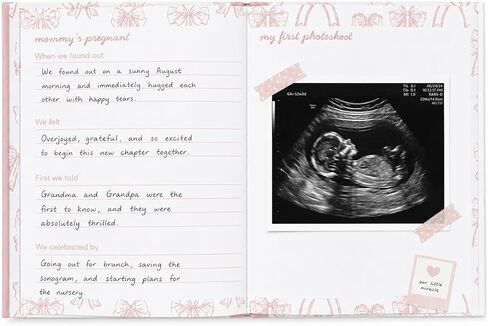 mommy's pregnant
When we found out
We found out on a sunny August
morning and immediately hugged each
other with happy tears.
We felt
Overjoyed, grateful, and so excited
to begin this new chapter together.
First we told
Grandma and Grandpa were the
first to know, and they were
absolutely thrilled.
We celebrated by
Going out for brunch, saving the
sonogram, and starting plans for
the nursery.
my first photoshoot
GA=12w5d
our little
miracle